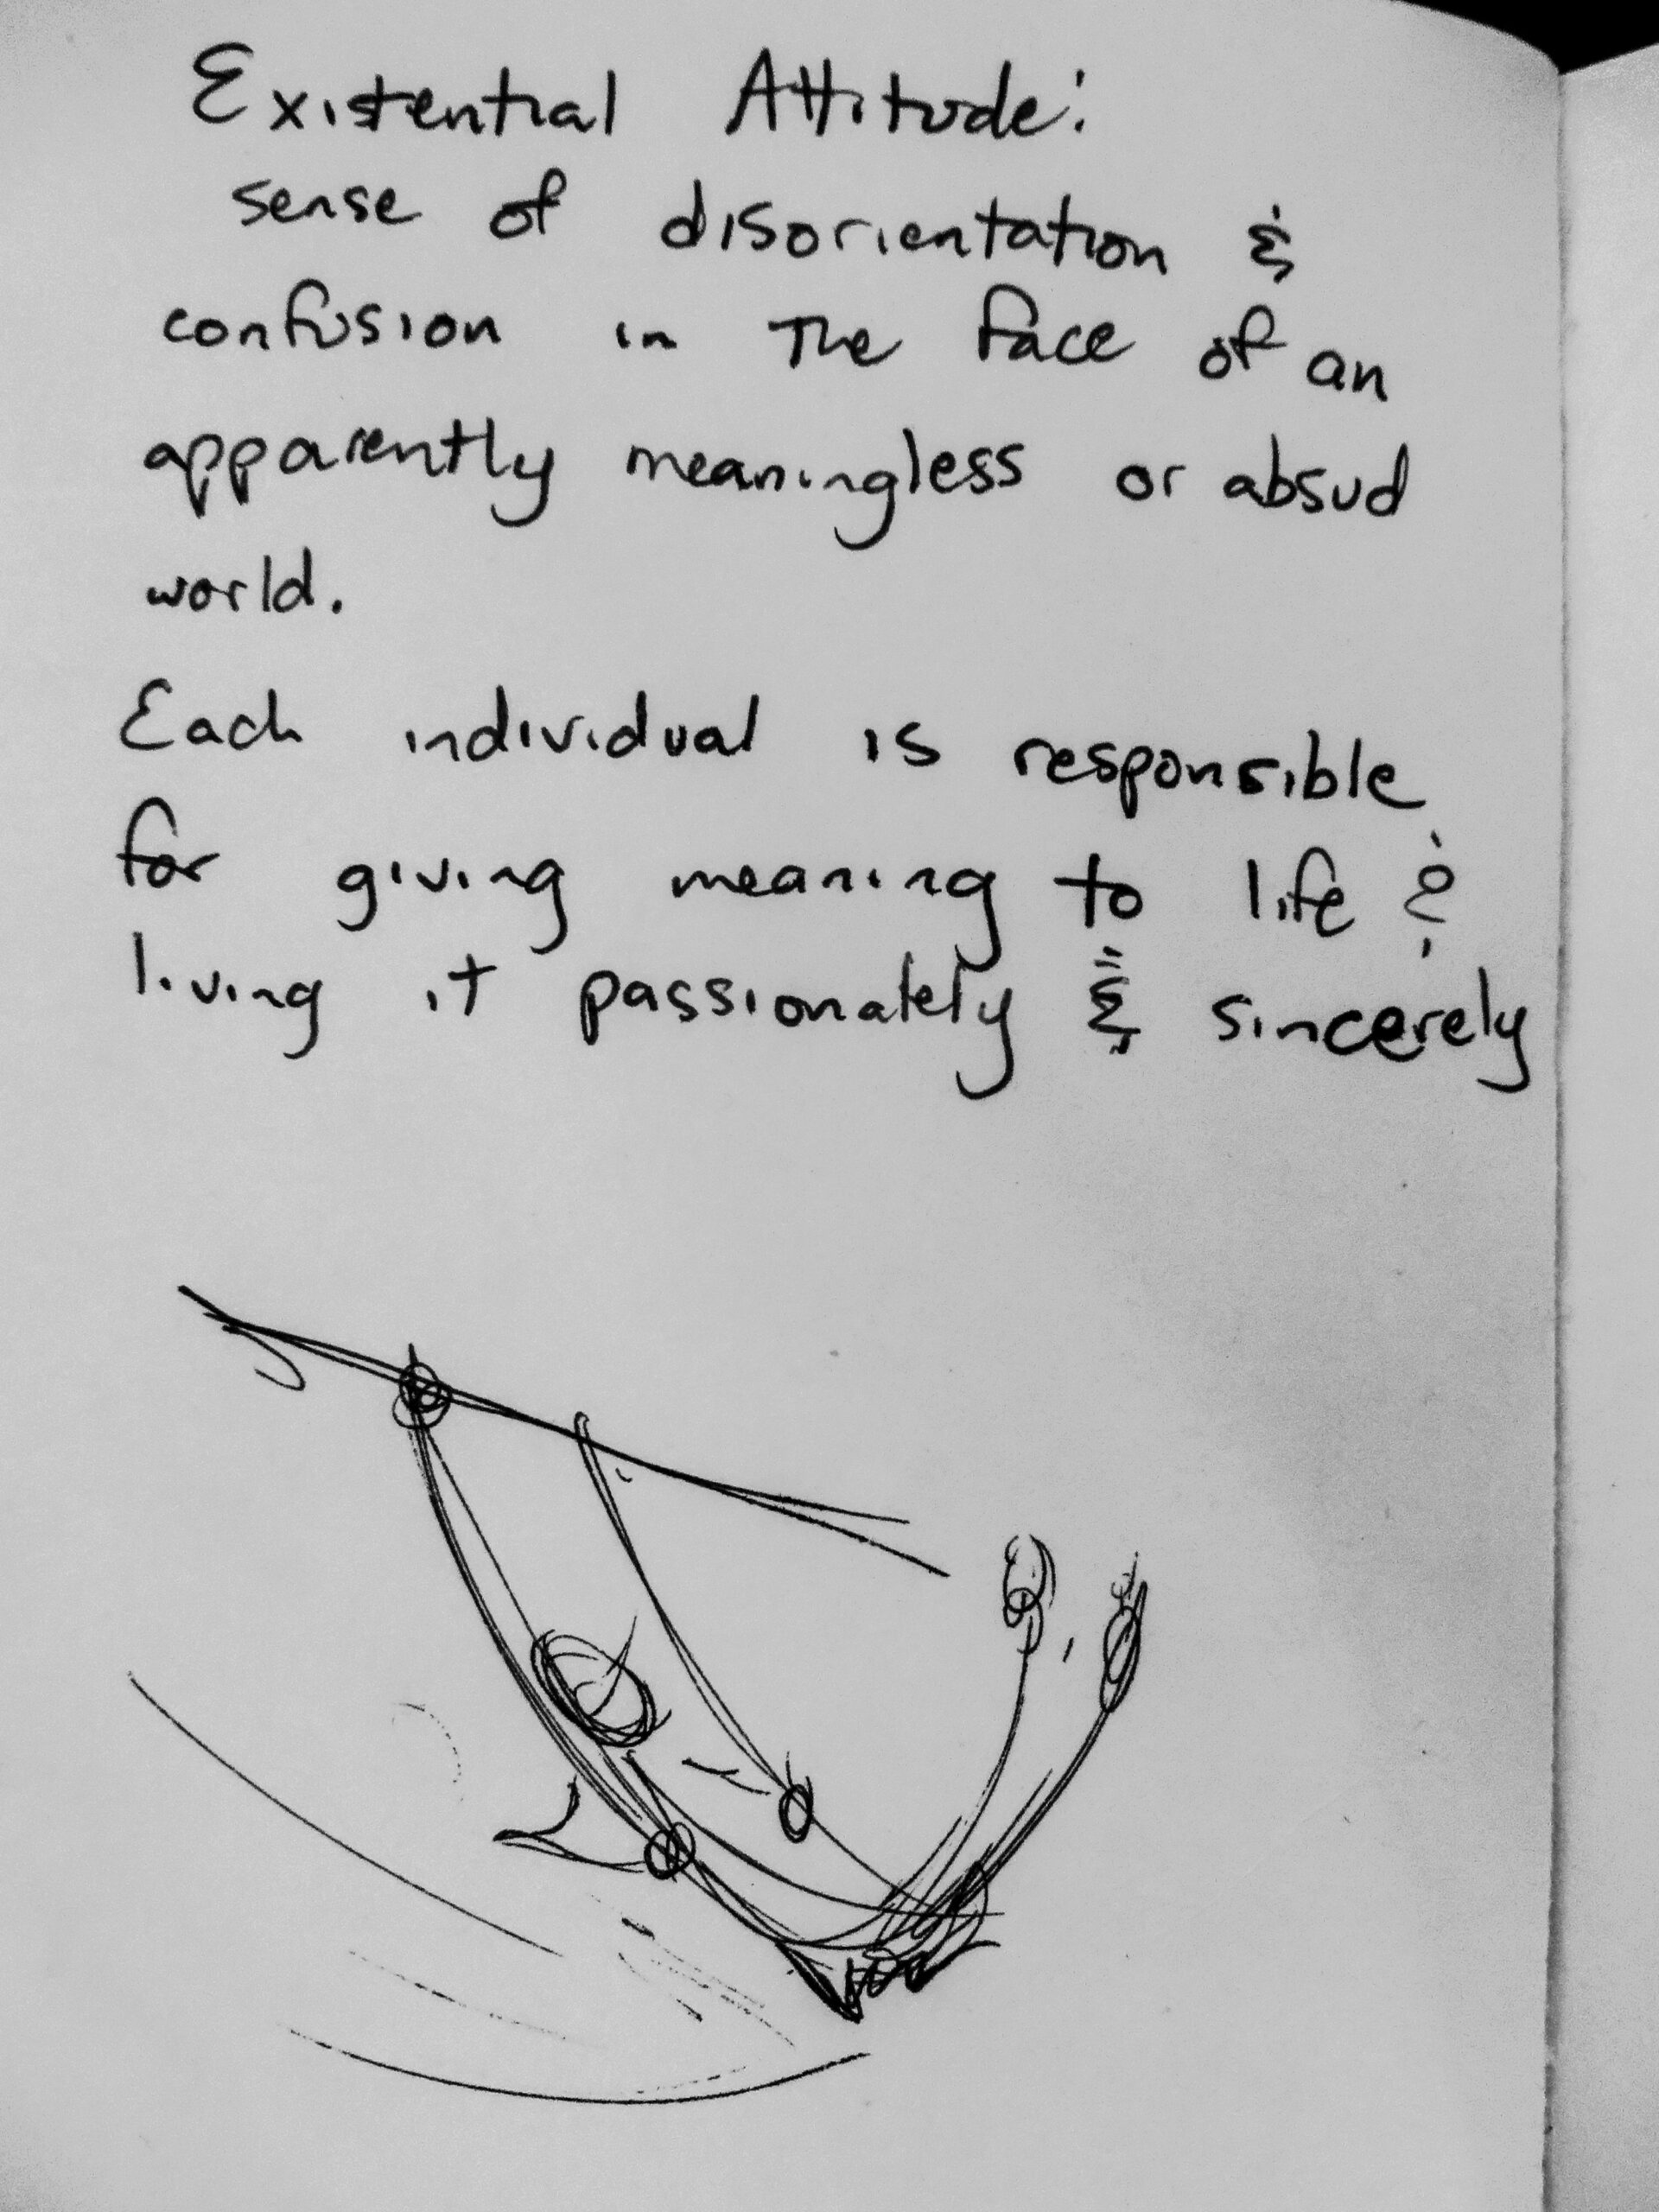 Existential Attitude:
sense of disorientation &
confusion in The face of an
apparently meaningless or absud
world.
Each individual is responsible
for giving meaning to life &
living it passionately & sincerely